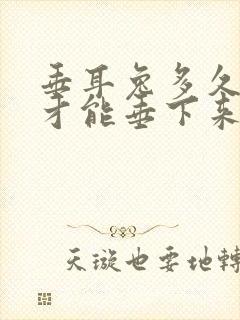 垂耳兔多久
才能垂下来
天璇也要地轉